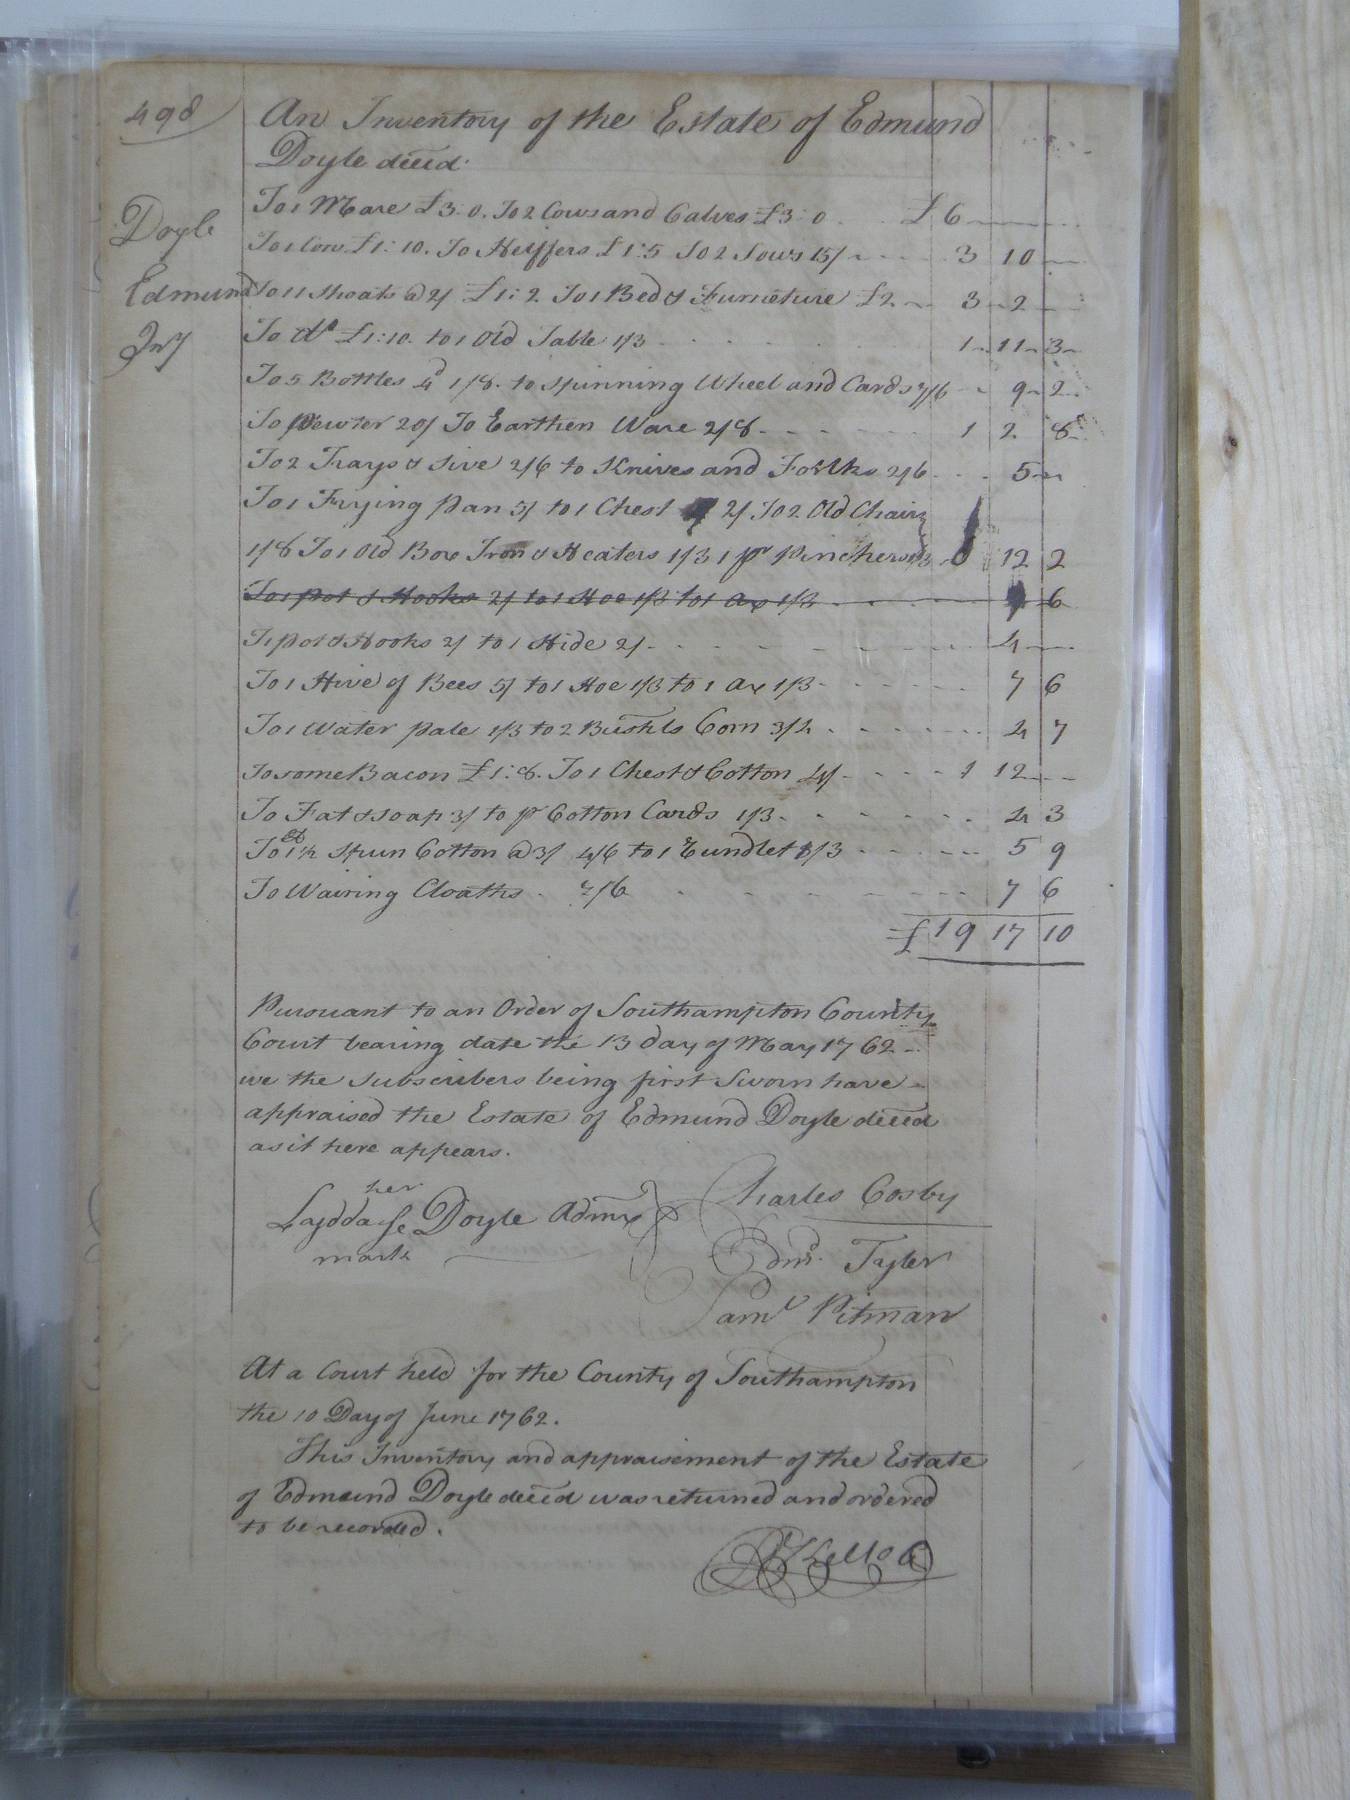 498
An Inventory of the Estate of Edmund
Doyle deced.
Doyle
Edmund
Invy
To 1 Mare £3:0. To 2 Cows and Calves £3:0 £ 6
To 1 Cow £1:10. To Heiffers £1:5 To 2 Sows 15/ 3 10
To 11 Shoats @ 2/ £1:2 To 1 Bed & Furneture £2 3 2
To do £1:10. to 1 Old Table 1/3 1 11 3
To 5 Bottles 4d 1/8. to Spinning Wheel and Cards 7/6 9 2
To Pewter 20/ To Earthen Ware 2/8 1 2 8
To 2 Trays & Sive 2/6 to Knives and Forks 2/6 5
To 1 Frying pan 5/ to 1 Chest 2/ To 2 Old Chairs
1/8 To 1 Old Box Iron & Heaters 1/3 1 pr Pinchers 12 2
To 1 pot & Hooks 2/ to 1 Hoe 1/3 to 1 ax 1/3 6
To pot & Hooks 2/ to 1 Hide 2/ 4
To 1 Hive of Bees 5/ to 1 Hoe 1/3 to 1 ax 1/3 7 6
To 1 Water pale 1/3 to 2 Bushls Corn 3/4 4 7
To some Bacon £1:8. To 1 Chest & Cotton 4/ 1 12
To Fat & Soap 3/ to pr Cotton Cards 1/3 4 3
To 1 ½ Spun Cotton @ 3/ 4/6 to 1 Rundlet 1/3 5 9
To Wairing Cloaths 7/6 7 6
£ 19 17 10
Pursuant to an Order of Southampton County
Court bearing date the 13 day of May 1762
we the Subscribers being first Sworn have
appraised the Estate of Edmund Doyle deceed
as it here appears.
her
Doyle Admx
mark
Charles Cosby
Edmd. Tyler
Saml Pitman
At a Court held for the County of Southampton
the 10 Day of June 1762.
This Inventory and appraisement of the Estate
of Edmund Doyle deceed was returned and ordered
to be recorded.